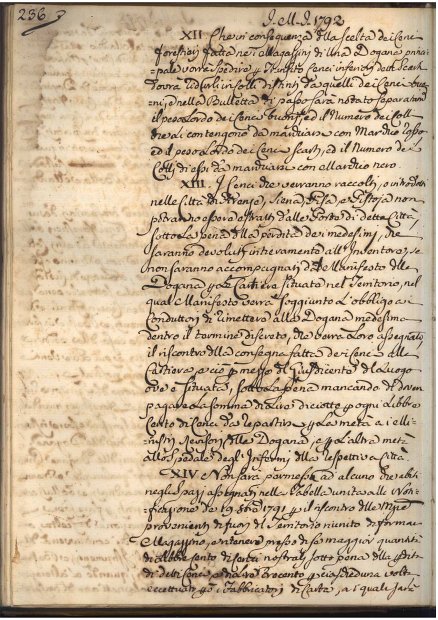 236
J. M. J. 1792
XII Chi in conseguenza della scelta dei Cenci
forestieri fatta nei Magazzini di una Dogana princi-
pale vorrà spedire per transito Cenci inferiori detti Scarti
dovrà ridurli in Colli distinti da quelli dei Cenci buo-
ni, e nella Bulletta di passo sarà notato separatam.
il peso Lordo dei Cenci buoni, ed il Numero dei Colli
che li contengono da marcarsi con Marchio rosso
ed il peso Lordo dei Cenci Scarti, ed il Numero dei
Colli di essi da marcarsi con Marchio nero.
XIII. I Cenci che verranno raccolti, o introdotti
nelle Città di Firenze, Siena, Pisa, e Pistoja non
potranno essere estratti dalle Porte di dette Città,
sotto La pena della perdita dei medesimi, che
saranno devoluti intieramente all' Inventore, se
non saranno accompagnati dal Manifesto della
Dogana per la Cartiera situata nel Territorio, nel
qual Manifesto verrà soggiunto L'obbligo ai
conduttori di rimettere alla Dogana medesima
dentro il termine discreto, che verrà Loro assegnato,
il riscontro della consegna fatta dei Cenci alla
Cartiera, e ciò per mezzo del Giusdicente del Luogo
ove è situata, sotto La pena mancando di dover
pagare La somma di Lire diciotto per ogni Libbre
Cento di Cenci da repartirsi per La metà ai Mi-
nistri Revisori della Dogana, e per L'altra metà
allo Spedale degl' Infermi della respettiva Città.
XIV Non sarà permesso ad alcuno che abiti
negli Spazj assegnati nella Tabella unita alla Noti-
ficazione de' 19. 1791 per il riscontro delle Merci
provenienti di fuori del Territorio riunito di formar
Magazzino, e ritenere presso di se maggior quantità
di Libbre cento di Cenci nostrali sotto pena della perdita
di detti Cenci, e di Lire per cento per ciascheduna volta
eccettuati però i Fabbricatori di Carta, ai quali sarà